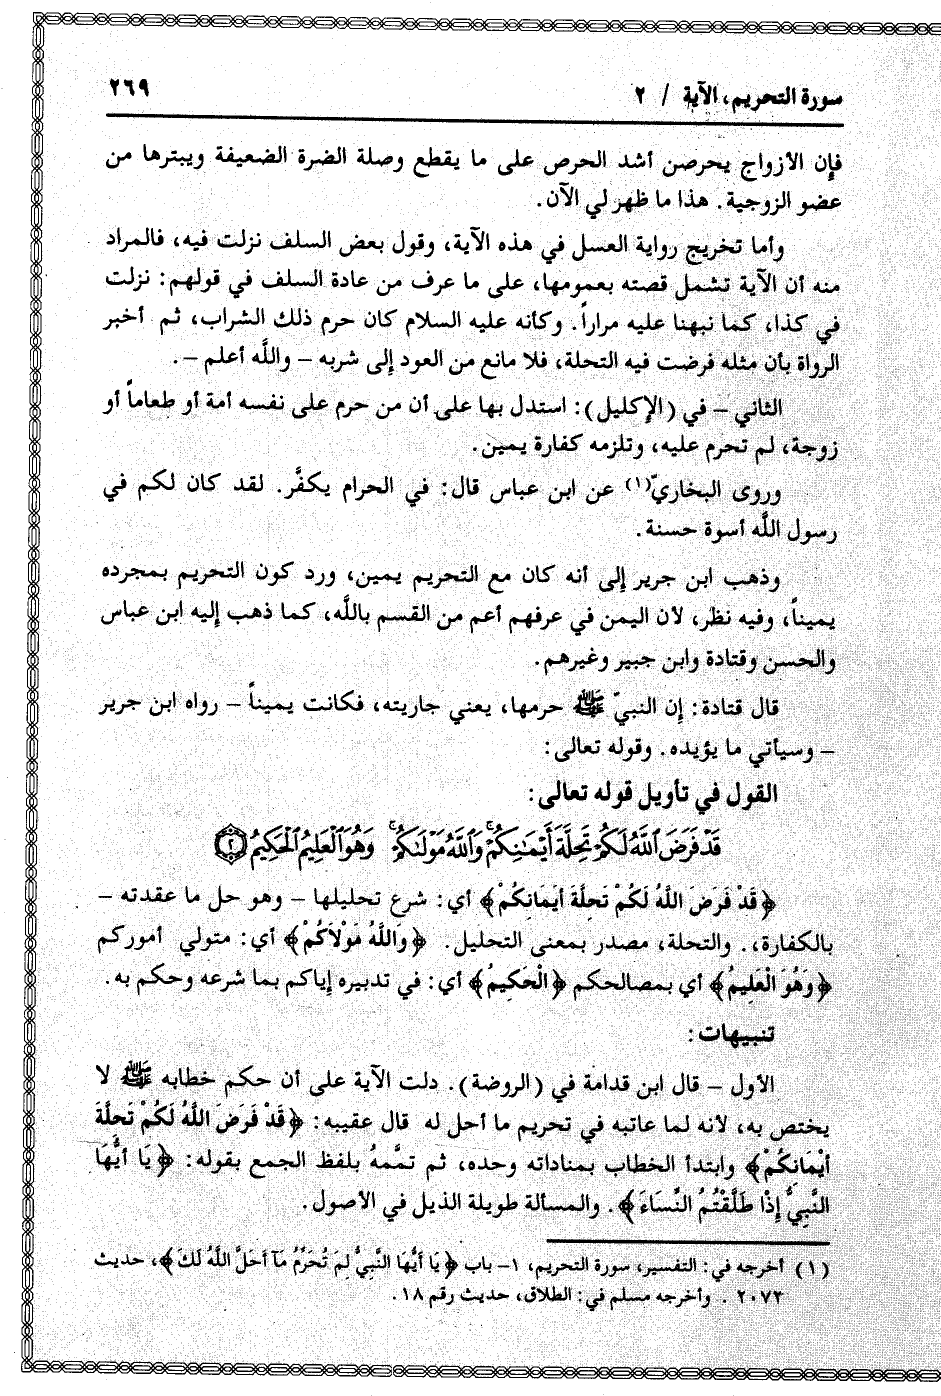 سورة التحريم، الآية / ٢
٢٦٩
فإن الأزواج يحرصن أشد الحرص على ما يقطع وصلة الضرة الضعيفة ويبترها من
عضو الزوجية. هذا ما ظهر لي الآن.
وأما تخريج رواية العسل في هذه الآية، وقول بعض السلف نزلت فيه، فالمراد
منه أن الآية تشمل قصته بعمومها، على ما عرف من عادة السلف في قولهم: نزلت
في كذا، كما نبهنا عليه مراراً. وكأنه عليه السلام كان حرم ذلك الشراب، ثم أخبر
الرواة بأن مثله فرضت فيه التحلة، فلا مانع من العود إلى شربه – والله أعلم –.
الثاني – في (الإكليل): استدل بها على أن من حرم على نفسه أمة أو طعاماً أو
زوجة، لم تحرم عليه، وتلزمه كفارة يمين.
وروى البخاريّ(١) عن ابن عباس قال: في الحرام يكفَّر. لقد كان لكم في
رسول الله أسوة حسنة.
وذهب ابن جرير إلى أنه كان مع التحريم يمين، ورد كون التحريم بمجرده
يميناً، وفيه نظر، لأن اليمن في عرفهم أعم من القسم بالله، كما ذهب إليه ابن عباس
والحسن وقتادة وابن جبير وغيرهم.
قال قتادة: إن النبيّ ﷺ حرمها، يعني جاريته، فكانت يميناً – رواه ابن جرير
– وسيأتي ما يؤيده. وقوله تعالى:
القول في تأويل قوله تعالى:
قَدْ فَرَضَ ٱللَّهُ لَكُمْ تَحِلَّةَ أَيْمَٰنِكُمْ ۚ وَٱللَّهُ مَوْلَىٰكُمْ ۖ وَهُوَ ٱلْعَلِيمُ ٱلْحَكِيمُ ٢
﴿قَدْ فَرَضَ اللَّهُ لَكُمْ تَحِلَّةَ أَيمَانِكُمْ﴾ أي: شرع تحليلها – وهو حل ما عقدته –
بالكفارة،. والتحلة، مصدر بمعنى التحليل. ﴿وَاللَّهُ مَوْلاَكُمْ﴾ أي: متولي أموركم
﴿وَهُوَ الْعَلِيمُ﴾ أي بمصالحكم ﴿الْحَكِيمُ﴾ أي: في تدبيره إياكم بما شرعه وحكم به.
تنبيهات:
الأول – قال ابن قدامة في (الروضة). دلت الآية على أن حكم خطابه ﷺ لا
يختص به، لأنه لما عاتبه في تحريم ما أحل له قال عقيبه: ﴿قَدْ فَرَضَ اللَّهُ لَكُمْ تَحِلَّةَ
أَيْمَانِكُمْ﴾ وابتدأ الخطاب بمناداته وحده، ثم تمَّمهُ بلفظ الجمع بقوله: ﴿يَا أَيُّهَا
النَّبِيُّ إِذَا طَلَّقْتُمُ النِّسَاءَ﴾. والمسألة طويلة الذيل في الأصول.
(١) أخرجه في: التفسير، سورة التحريم، ١– باب ﴿يَا أَيُّهَا النَّبِيُّ لِمَ تُحَرِّمُ مَآ أَحَلَّ اللَّهُ لَكَ﴾، حديث
٢٠٧٣ . وأخرجه مسلم في: الطلاق، حديث رقم ١٨.